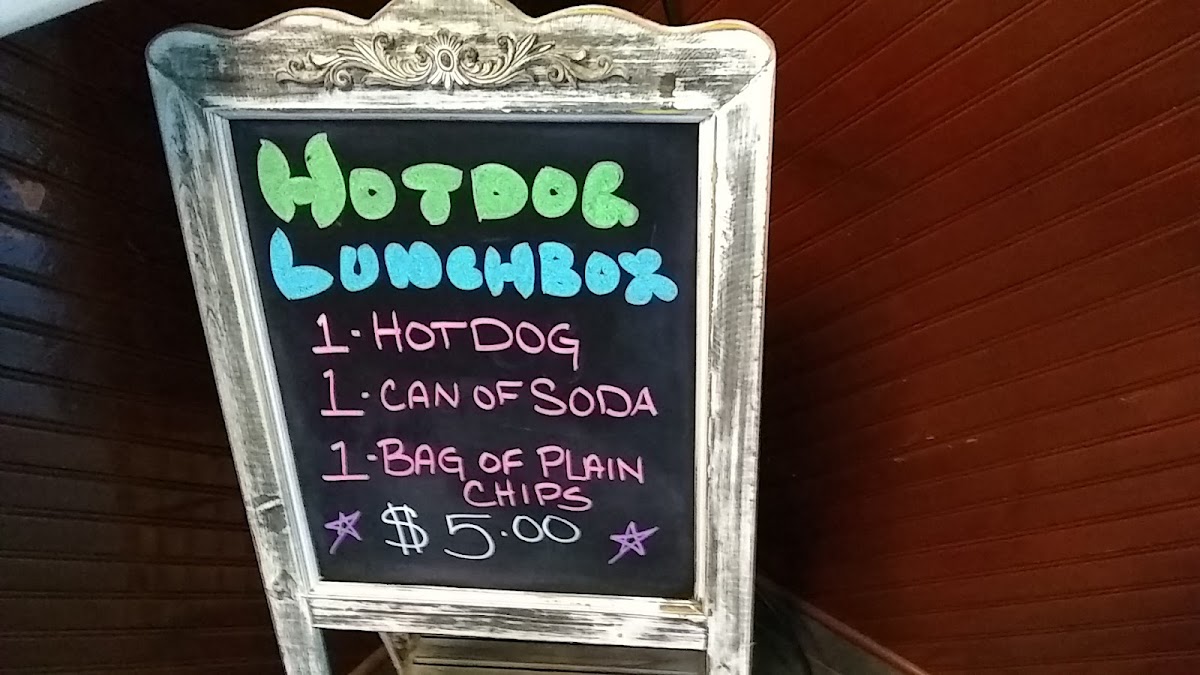 HOTDOG
LUNCHBOX
1-HOTDOG
1-CAN OF SODA
1-BAG OF PLAIN
CHIPS
$5.00